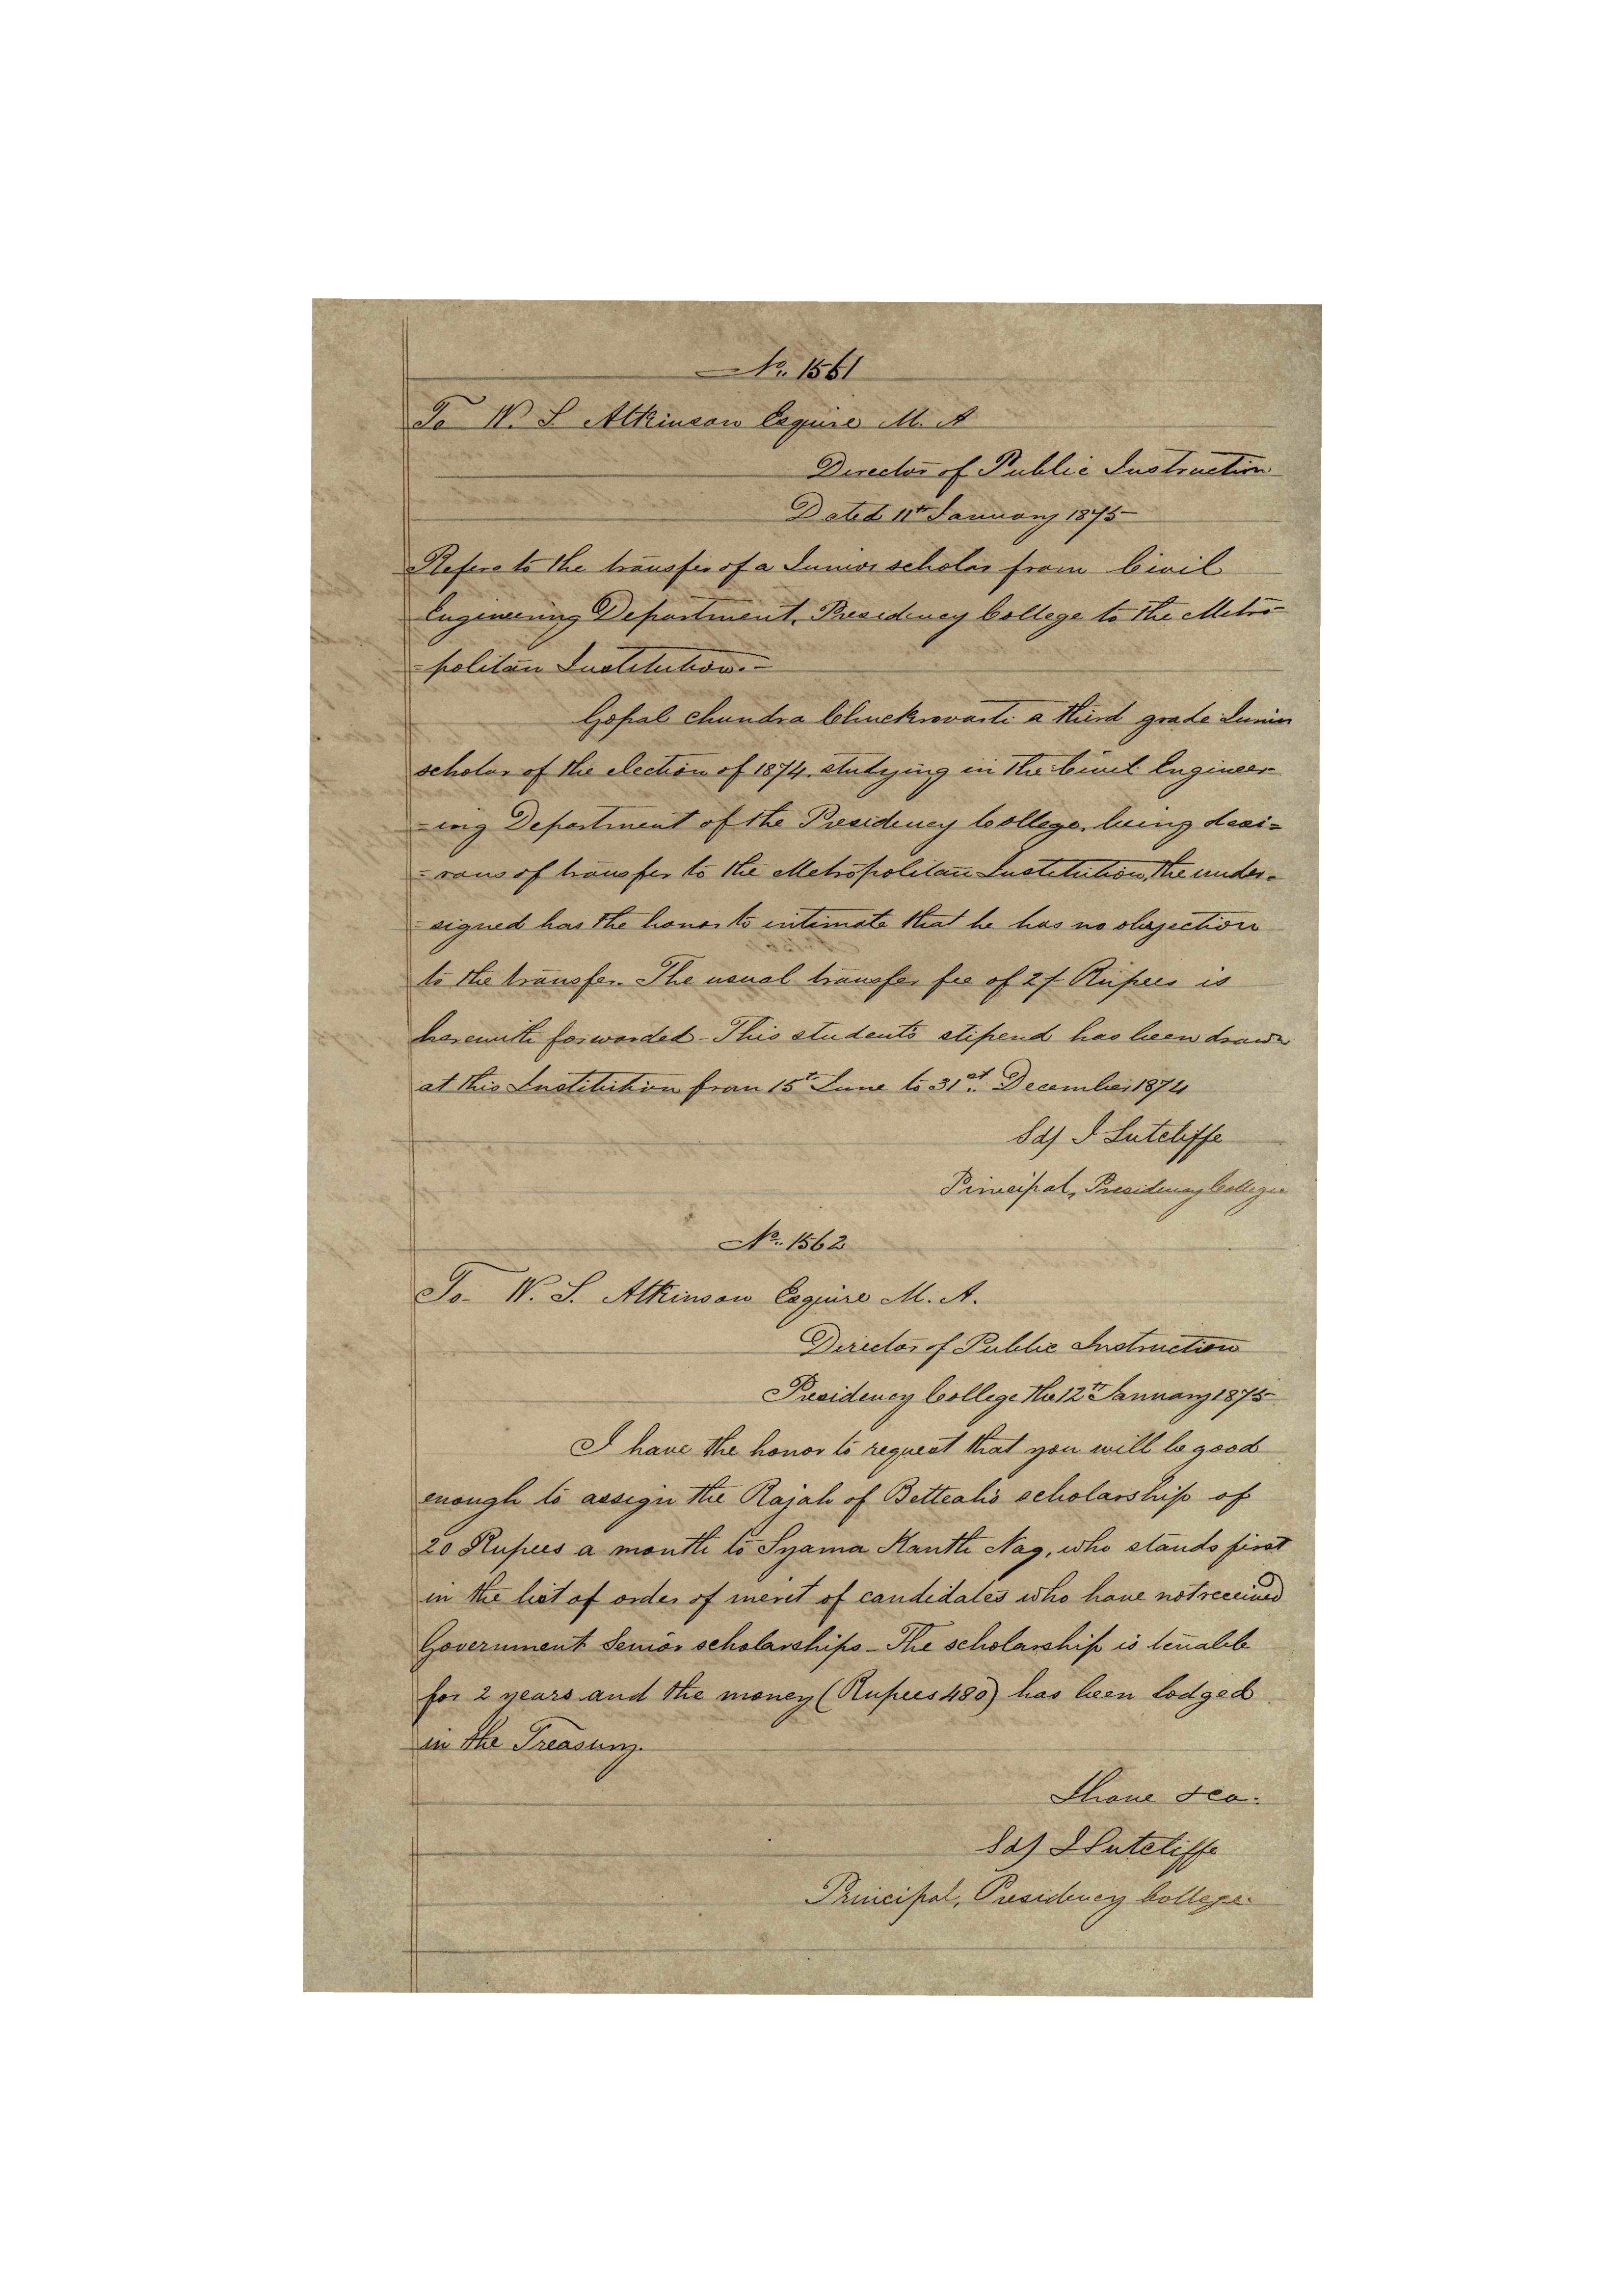 No. 1561
To W. S Atkinson Esquire M. A
Director of Public Instruction
Dated 11th January 1875
Refers to the transfer of a Junior scholar from Civil
Engineering Department, Presidency College to the Metro
=politan Institution.-
Gopal Chundra Chuckrovarti a third grade Junior
scholar of the election of 1874. studying in the Civil Engineer-
=ing Department of the Presidency College, being desi=
=rous of transfer to the Metropolitan Institution, the under-
=signed has the honor to intimate that he has no objection
to the transfer. The usual transfer fee of 2/- Rupees is
herewith forwarded - This students stipend has been drawn
at this Institution from 15th June to 31st. December 1874
Sd/ J Sutcliffe
Principal, Presidency College
No. 1562
To- W. S. Atkinson Esquire M. A.
Director of Public Instruction
Presidency College the 12th January 1875
I have the honor to request that you will be good
enough to assign the Rajah of Betteah's scholarship of
20 Rupees a month to Syama Kanth Nag, who stands first
in the list of order of merit of candidates who have not received
Government Senior scholarships - The scholarship is tenable
for 2 years and the money (Rupees 480) has been lodged
in the Treasury.
I have &ca.
Sd) J Sutcliffe
Principal, Presidency College.